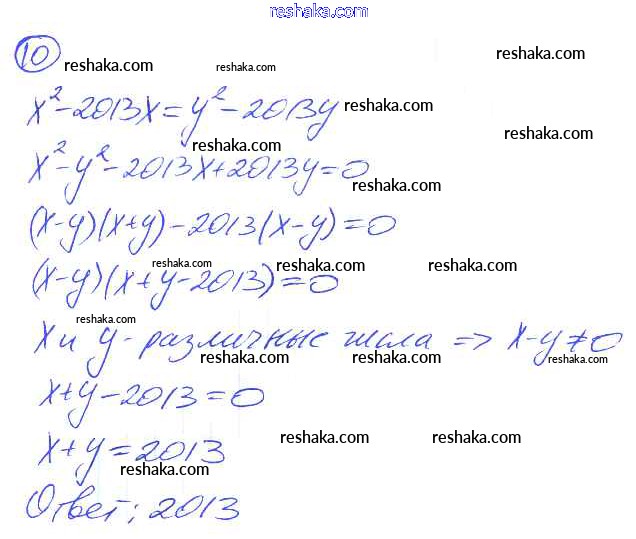 reshaka.com
10
reshaka.com reshaka.com reshaka.com
x²-2013x=y²-2013y reshaka.com
reshaka.com
x²-y²-2013x+2013y=0
reshaka.com
(x-y)(x+y)-2013(x-y)=0
reshaka.com reshaka.com reshaka.com
(x-y)(x+y-2013)=0
reshaka.com
x и y - различные числа => x-y≠0
reshaka.com reshaka.com reshaka.com
x+y-2013=0
reshaka.com reshaka.com
x+y=2013
reshaka.com
Ответ: 2013